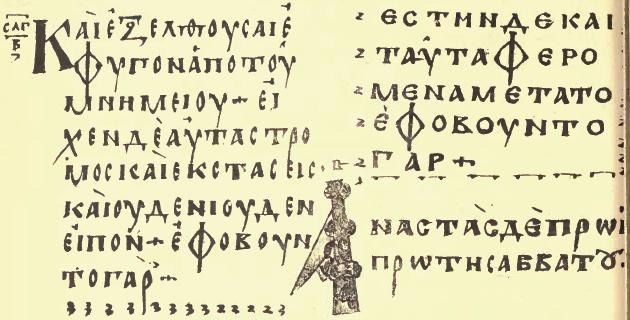 ϹΛΓ
Β
ΚΑΙΕΞΕΛΘΟΥϹΑΙΕ
ΦΥΓΟΝΑΠΟΤΟΥ
ΜΝΗΜΕΙΟΥ+ ΕΙ
ΧΕΝΔΕΑΥΤΑϹΤΡΟ
ΜΟϹΚΑΙΕΚϹΤΑϹΕΙϹ·
ΚΑΙΟΥΔΕΝΙΟΥΔΕΝ
ΕΙΠΟΝ+ ΕΦΟΒΟΥΝ
ΤΟΓΑΡ+
ΕϹΤΗΝΔΕΚΑΙ
ΤΑΥΤΑΦΕΡΟ
ΜΕΝΑΜΕΤΑΤΟ
ΕΦΟΒΟΥΝΤΟ
ΓΑΡ+
ΑΝΑϹΤΑϹΔΕΠΡΩΙ
ΠΡΩΤΗϹΑΒΒΑΤȢ·